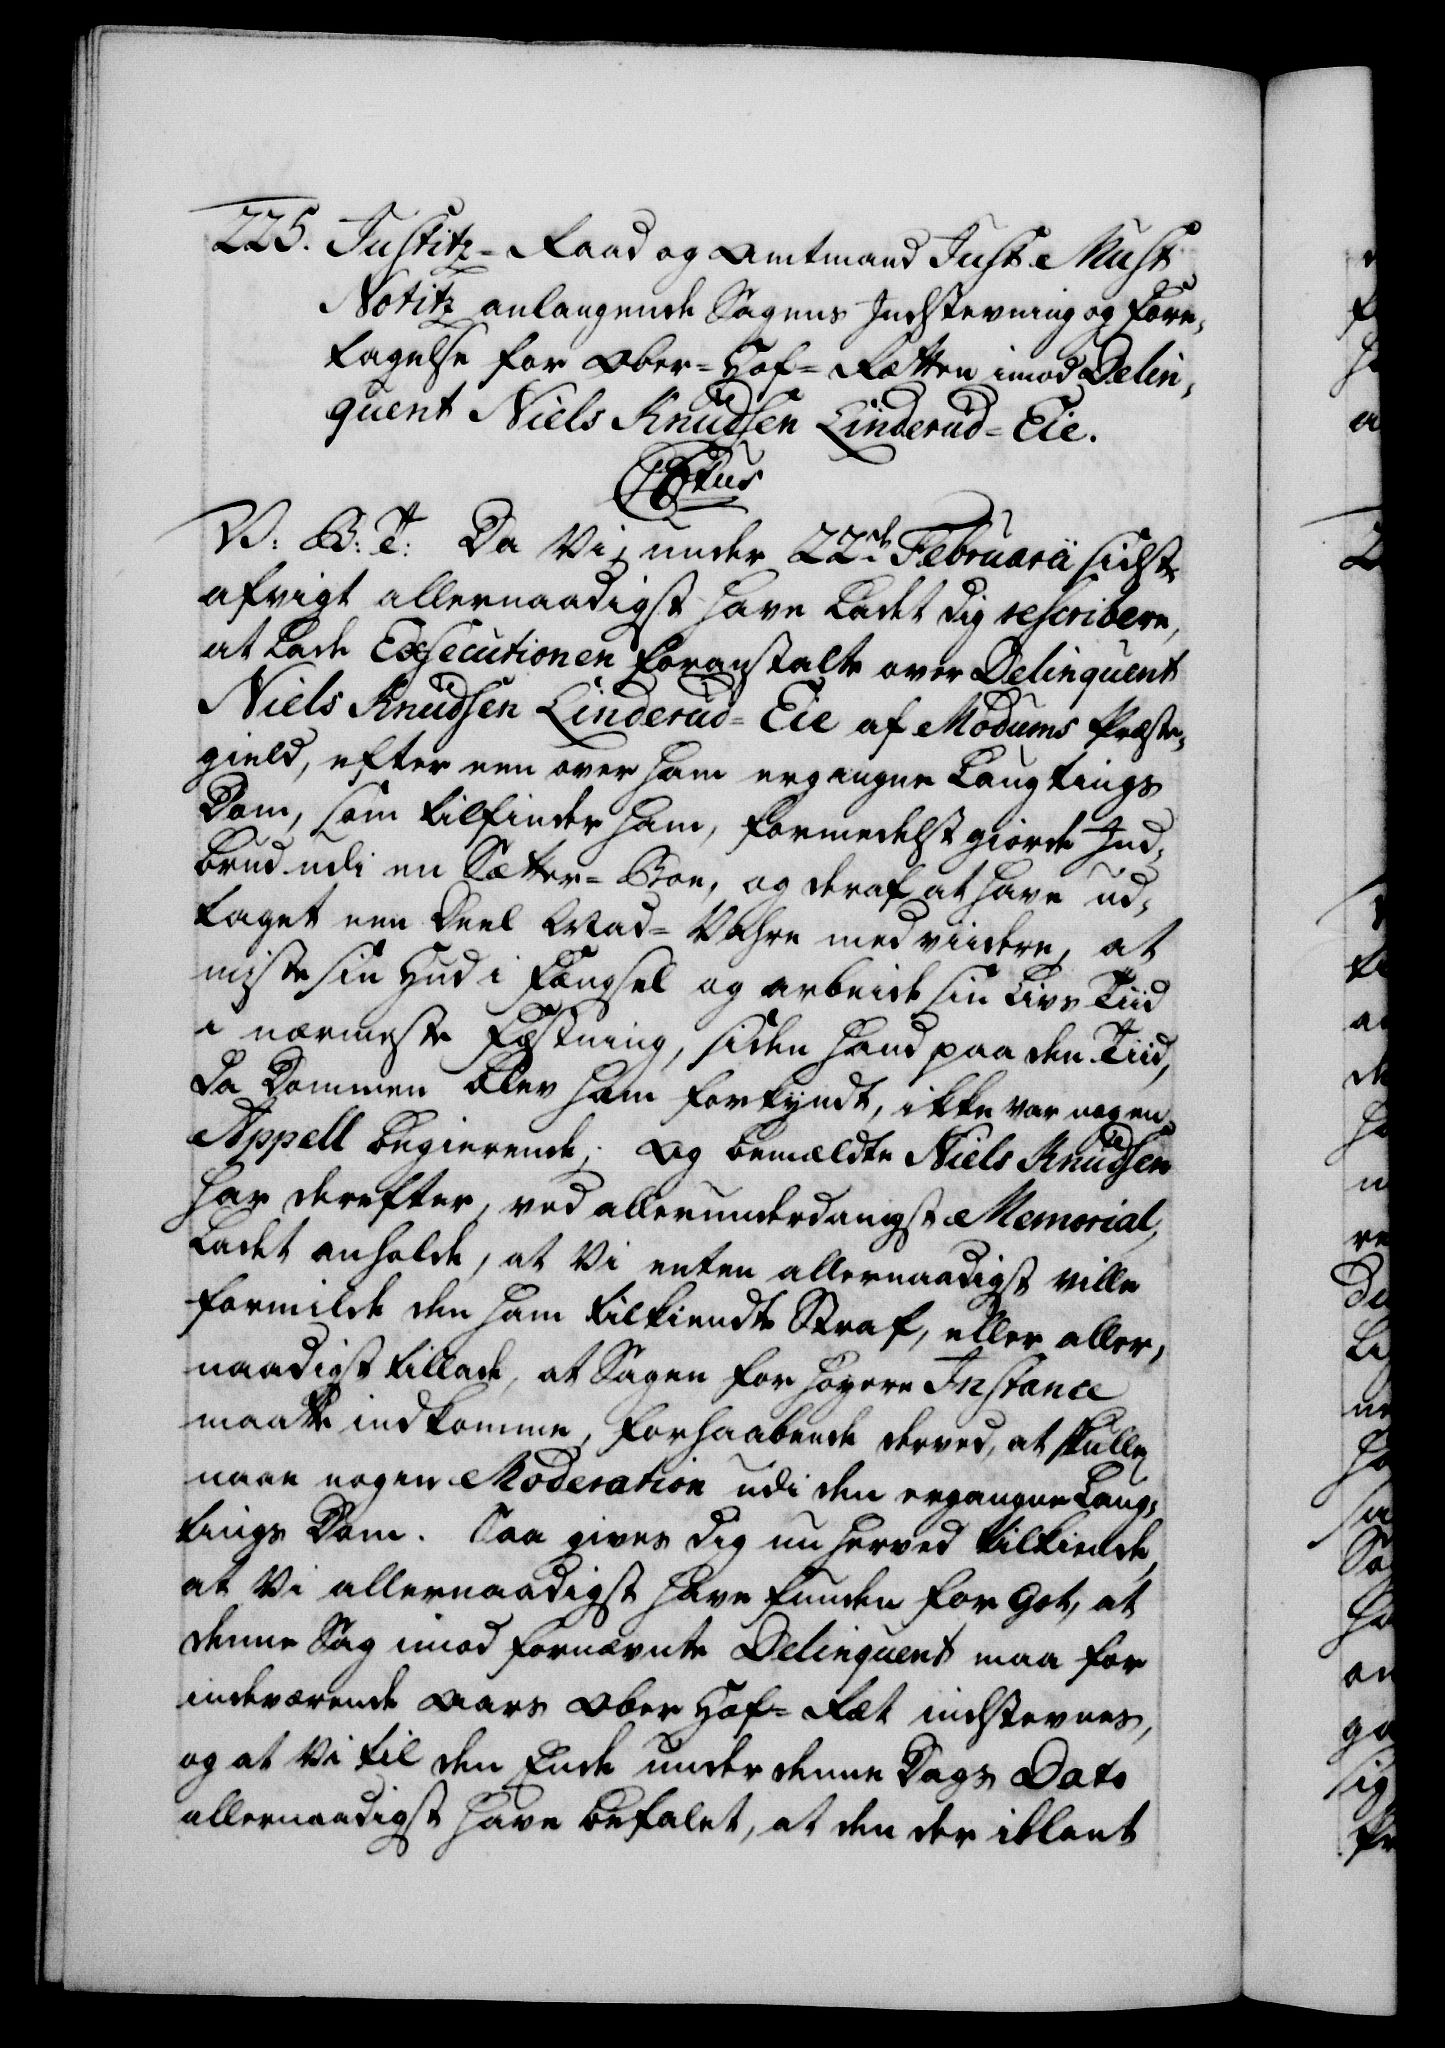 225. Justitz-Raad og Amtmand Just Must
Notitz anlangende Sagens Indstevning og Fore-
tagelse for Ober-Hof-Rætten imod Delin-
quent Niels Knudsen Linderud-Eie.
V: G: T: Da Vi, under 22de Februarii sidst
afvigt allernaadigst have ladet dig rescribere,
at lade Executionen foranstalte over Delinquent
Niels Knudsen Linderud-Eie af Modums Præste-
gield, efter een over ham ergangne Laugtings
Dom, som tilfinder ham, formedelst giorde Ind-
brud udi en Sætter-Boe, og deraf at have ud-
taget een Deel Mad-Vahre med viidere, at
miste sin Hud i Fængsel og arbeide sin Livs Tiid
i nærmeste Fæstning, siden hand paa den Tiid,
da Dommen blev ham forkyndt, ikke var nogen
Appell begierende; Og bemældte Niels Knudsen
har derefter, ved allerunderdanigst Memorial,
ladet anholde, at Vi enten allernaadigst ville
formilde den ham tilkiendte Straf, eller aller-
naadigst tillade, at Sagen for høyere Instance
maatte indkomme, forhaabende derved, at skulle
naae nogen Moderation udi den ergangne Laug-
tings Dom. Saa gives dig nu herved tilkiende,
at Vi allernaadigst have funden for Got, at
denne Sag imod fornævnte Delinquent maa for
indeværende Aars Ober Hof-Ræt indstevnes,
og at Vi til den Ende under denne Dags Dato
allernaadigst have befalet, at den der iblant